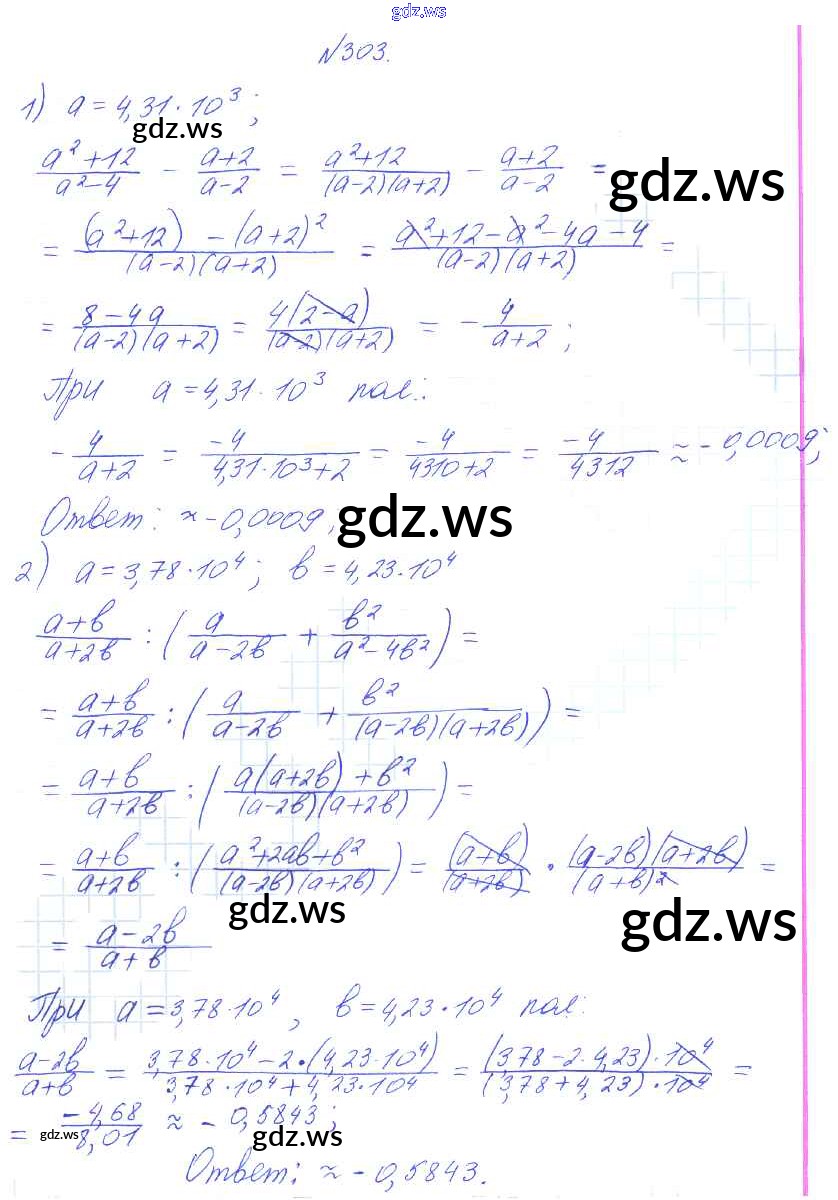 gdz.ws
№303.
1) a = 4,31·10³;
gdz.ws
(a²+12)/(a²-4) - (a+2)/(a-2) = (a²+12)/((a-2)(a+2)) - (a+2)/(a-2) =
gdz.ws
= ((a²+12) - (a+2)²)/((a-2)(a+2)) = (a²+12-a²-4a-4)/((a-2)(a+2)) =
= (8-4a)/((a-2)(a+2)) = 4(2-a)/((a-2)(a+2)) = -4/(a+2);
При a = 4,31·10³ пол.:
-4/(a+2) = -4/(4,31·10³+2) = -4/(4310+2) = -4/4312 ≈ -0,0009;
Ответ: ≈ -0,0009.
gdz.ws
2) a = 3,78·10⁴; в = 4,23·10⁴
(a+в)/(a+2в) : (a/(a-2в) + в²/(a²-4в²)) =
= (a+в)/(a+2в) : (a/(a-2в) + в²/((a-2в)(a+2в))) =
= (a+в)/(a+2в) : ((a(a+2в)+в²)/((a-2в)(a+2в))) =
= (a+в)/(a+2в) : ((a²+2aв+в²)/((a-2в)(a+2в))) = (a+в)/(a+2в) · ((a-2в)(a+2в))/(a+в)² =
gdz.ws
gdz.ws
= (a-2в)/(a+в)
При a = 3,78·10⁴, в = 4,23·10⁴ пол:
(a-2в)/(a+в) = (3,78·10⁴-2·(4,23·10⁴))/(3,78·10⁴+4,23·10⁴) = ((3,78-2·4,23)·10⁴)/((3,78+4,23)·10⁴) =
= -4,68/8,01 ≈ -0,5843;
gdz.ws
gdz.ws
Ответ: ≈ -0,5843.